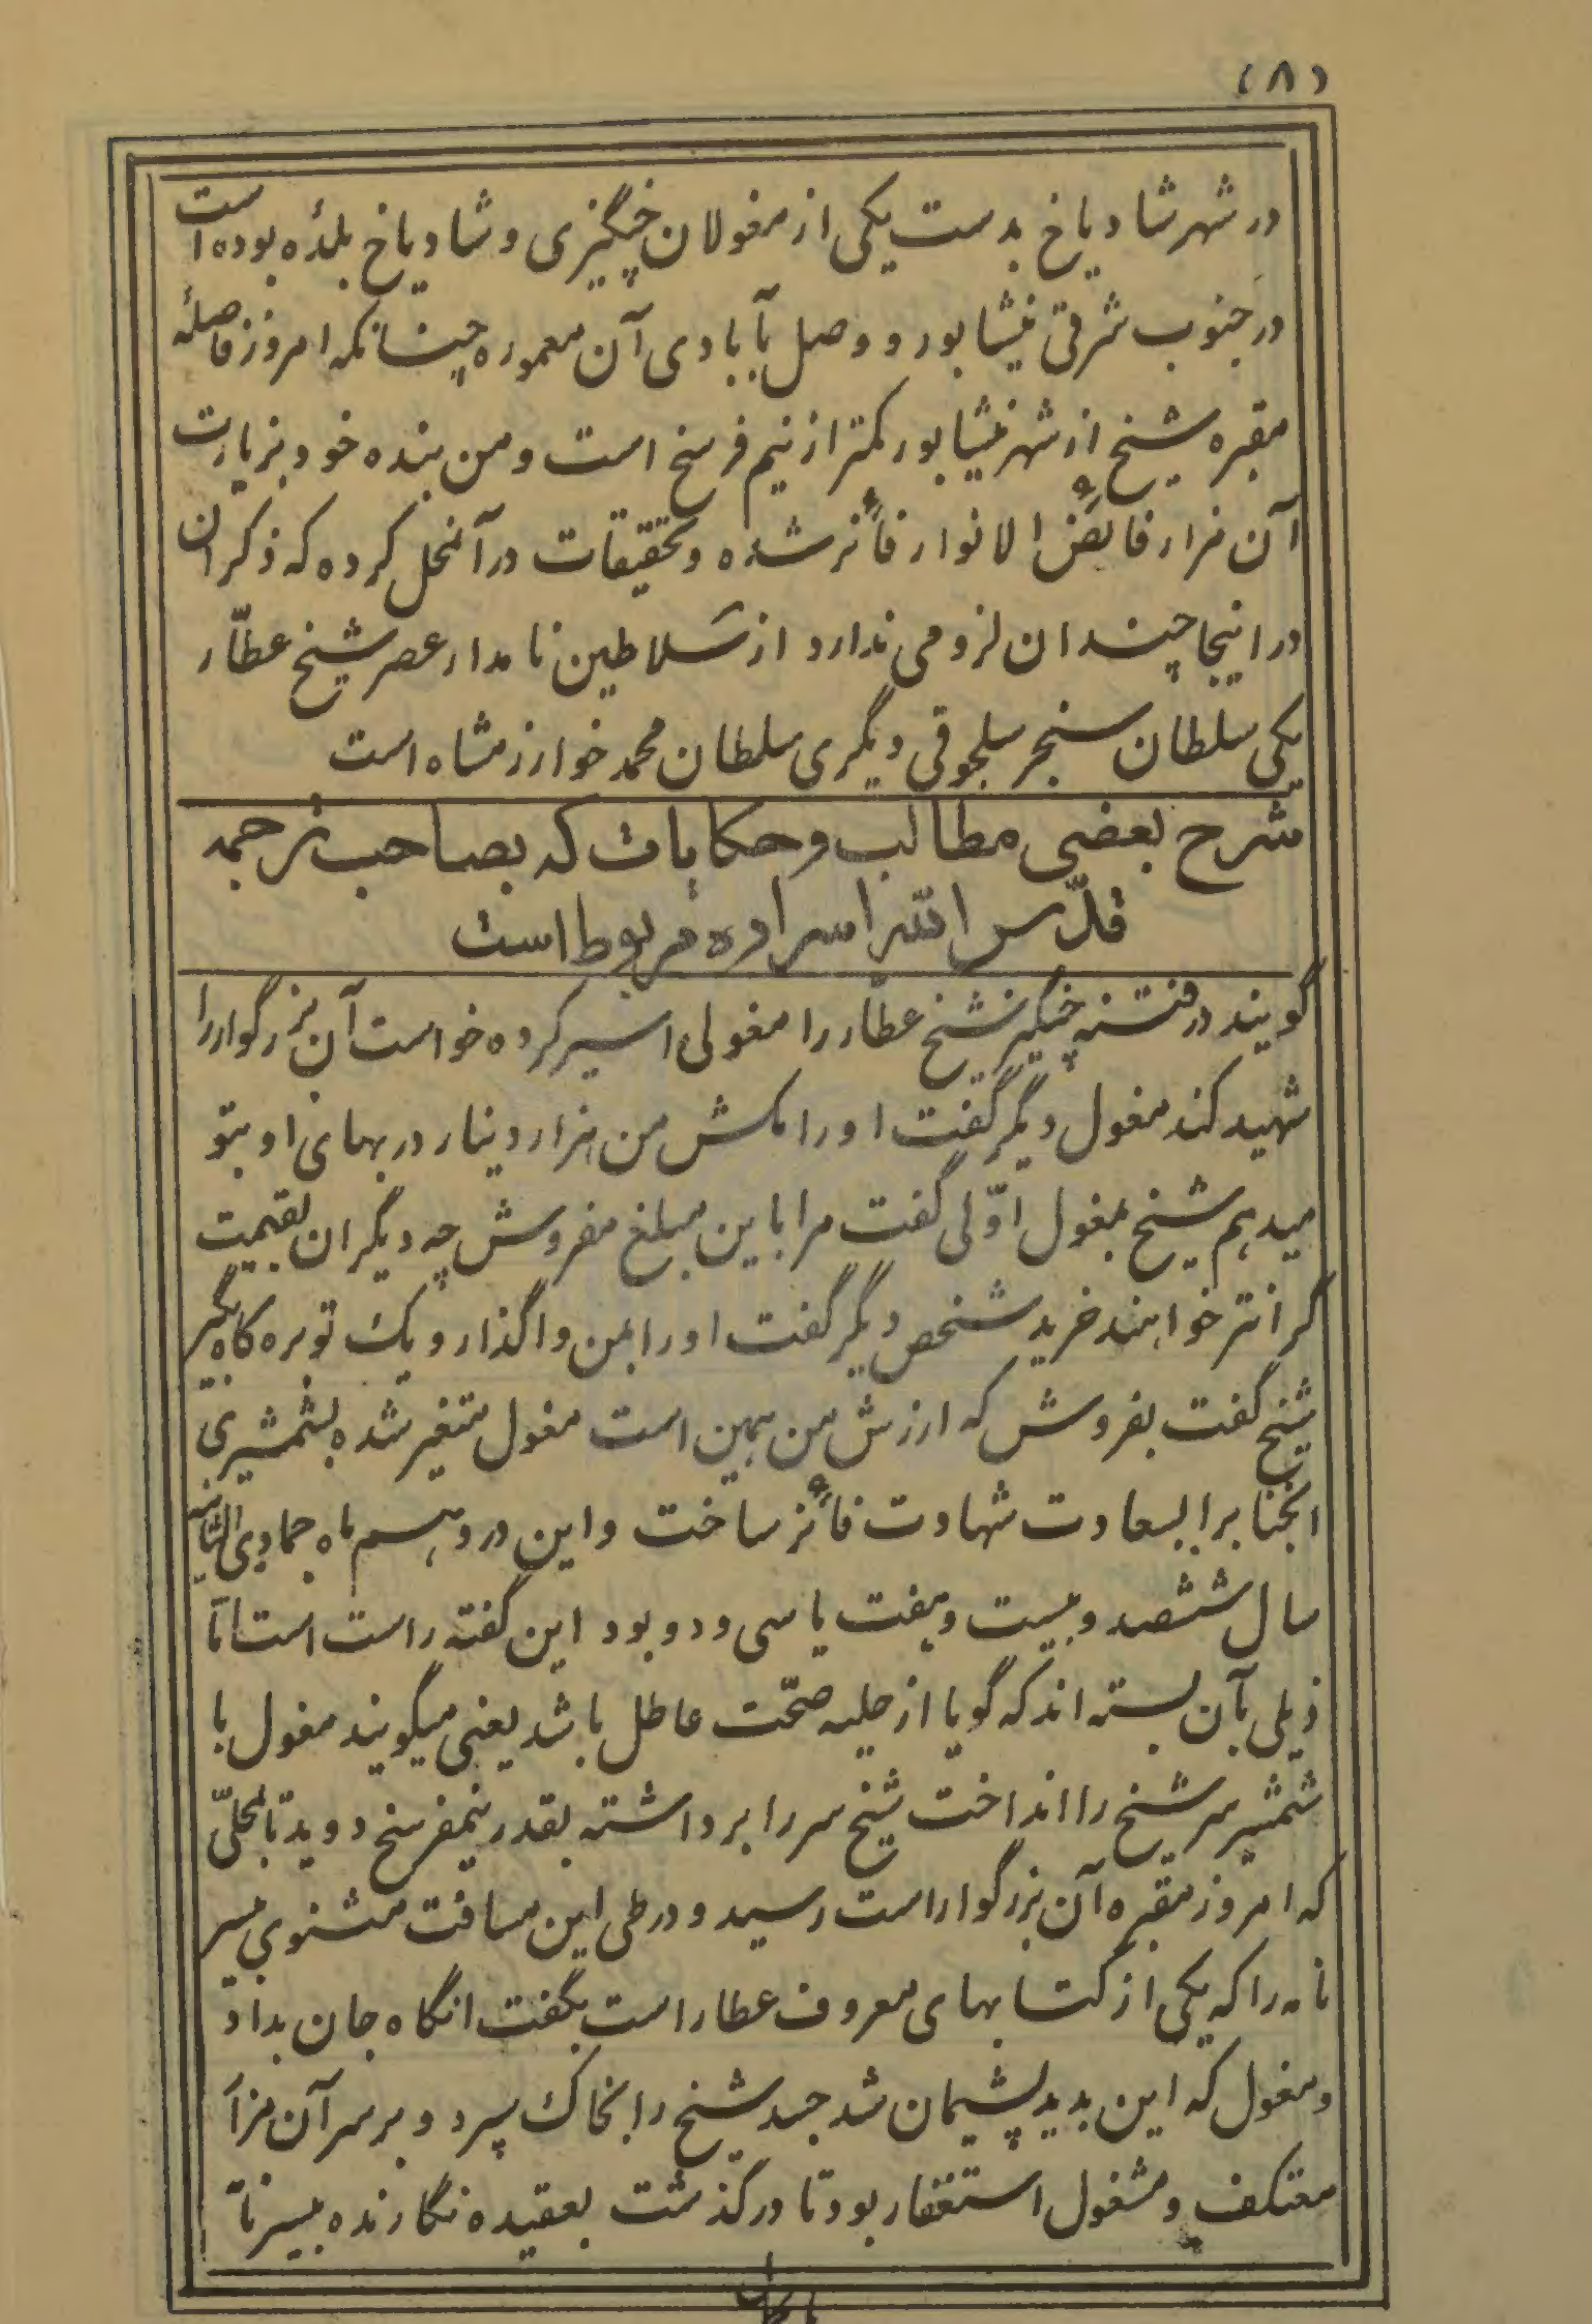 (۸)
در شهر شادیاخ بدست یکی از مغولان چنگیزی و شادیاخ بلدهٔ بوده است
در جنوب شرقی نیشابور و وصل بآبادی آن معموره چنانکه امروز فاصلهٔ
مقبره شیخ از شهر نیشابور کمتر از نیم فرسخ است و من بنده خود بزیارت
آن مزار فایض الانوار فائز شده و تحقیقات در آنمحل کرده که ذکر آن
در اینجا چندان لزومی ندارد از سلاطین نامدار عصر شیخ عطّار
یکی سلطان سنجر سلجوقی دیگری سلطان محمد خوارزمشاه است
شرح بعضی مطالب و حکایات که بصاحب ترجمه
قدّس الله اسراره مربوط است
گویند در فتنه چنگیز شیخ عطّار را مغولی اسیر کرده خواست آن بزرگوار را
شهید کند مغول دیگر گفت او را مکش من هزار دینار در بهای او بتو
میدهم شیخ بمغول اوّلی گفت مرا باین مبلغ مفروش چه دیگران بقیمت
گرانتر خواهند خرید شخص دیگر گفت او را بمن واگذار و یک توبره کاه بگیر
شیخ گفت بفروش که ارزش من همین است مغول متغیر شده بشمشیری
آنجناب را بسعادت شهادت فائز ساخت و این در دهم ماه جمادی الثانیه
سال ششصد و بیست و هفت یا سی و دو بود این گفته راست است امّا
ذیلی بآن بسته اند که گویا از حلیه صحّت عاطل باشد یعنی میگویند مغول با
شمشیر سر شیخ را انداخت شیخ سر را برداشته بقدر نیمفرسخ دوید تا بمحلّی
که امروز مقبره آن بزرگوار است رسید و در طی این مسافت مثنوی بیسر
نامه را که یکی از کتابهای معروف عطار است بگفت انگاه جان بداد
و مغول که این بدید پشیمان شد جسد شیخ را بخاک سپرد و بر سر آن مزار
معتکف و مشغول استغفار بود تا در گذشت بعقیده نگارنده بیسرنا